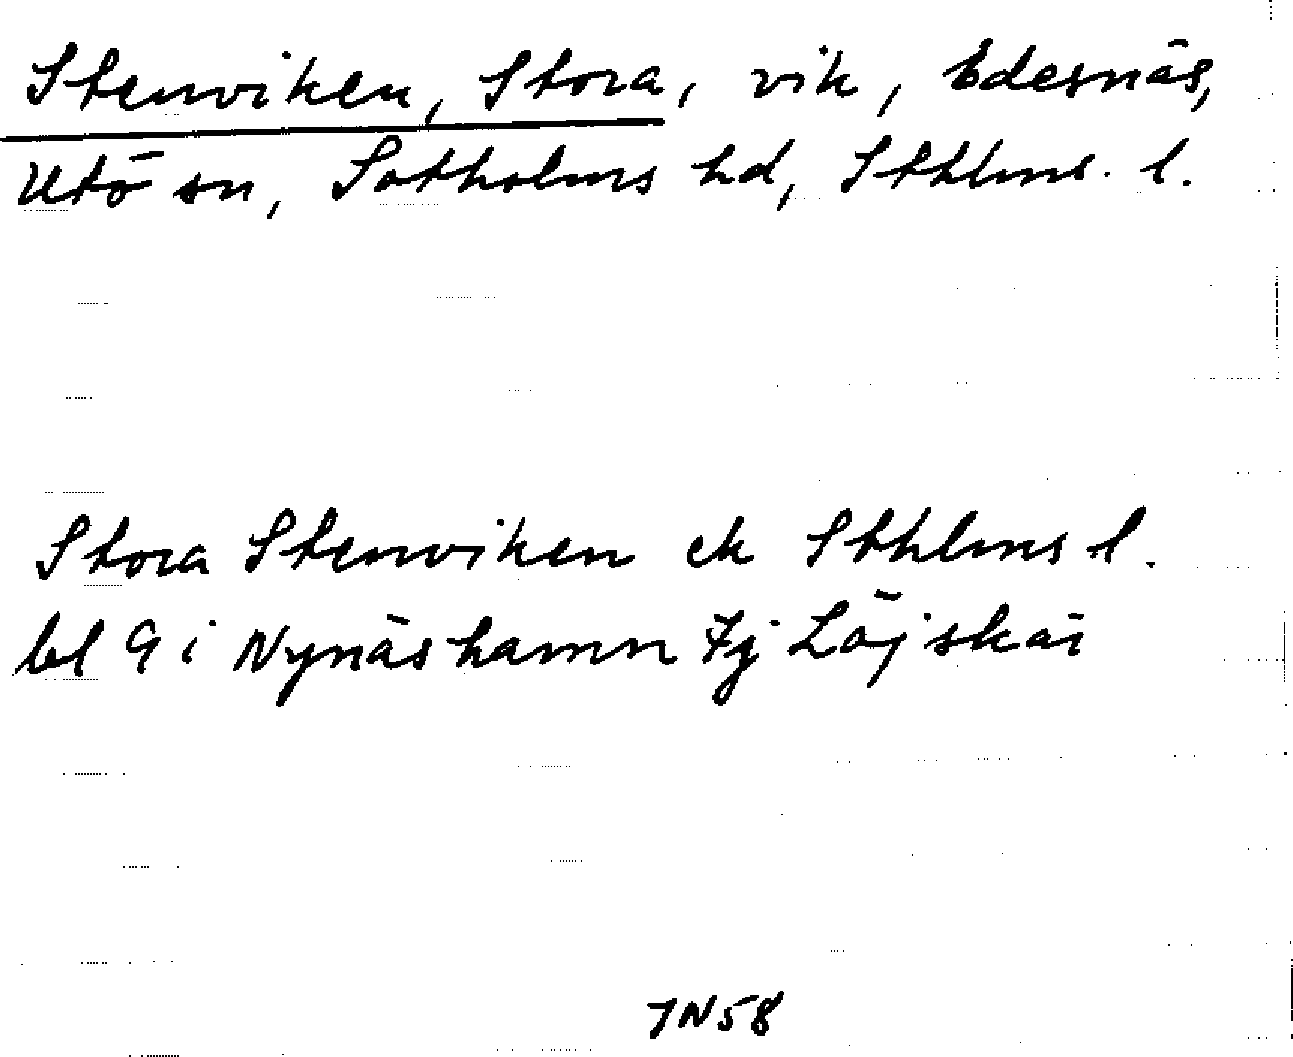 Stenviken, Stora, vik, Edesnäs,
Utö sn, Sotholms hd, Sthlms. l.
Stora Stenviken ek Sthlms l.
bl 9 i Nynäshamn 7j Löjskär
7N58